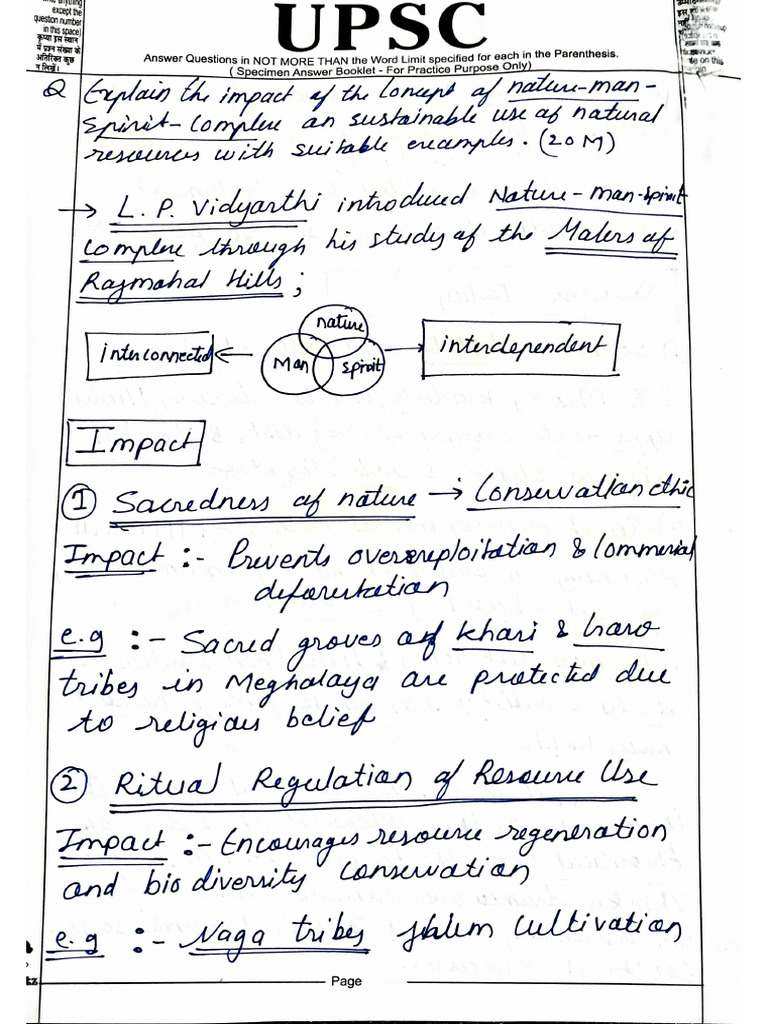 except the
question number
in this space)
कृपया इस स्थान
में प्रश्न संख्या के
अतिरिक्त कुछ
न लिखें।
UPSC
Answer Questions in NOT MORE THAN the Word Limit specified for each in the Parenthesis.
( Specimen Answer Booklet - For Practice Purpose Only)
Q Explain the impact of the concept of nature-man-
spirit-complex on sustainable use of natural
resources with suitable examples. (20 M)
→ L. P. Vidyarthi introduced Nature-man-spirit
complex through his study of the Malers of
Rajmahal Hills ;
nature
interconnected ← Man spirit → interdependent
Impact
① Sacredness of nature → Conservation ethic
Impact :- Prevents overexploitation & Commercial
deforestation
e.g :- Sacred groves of khasi & Garo
tribes in Meghalaya are protected due
to religious belief
② Ritual Regulation of Resource Use
Impact :- Encourages resource regeneration
and biodiversity conservation
e.g :- Naga tribes jhum cultivation
Page